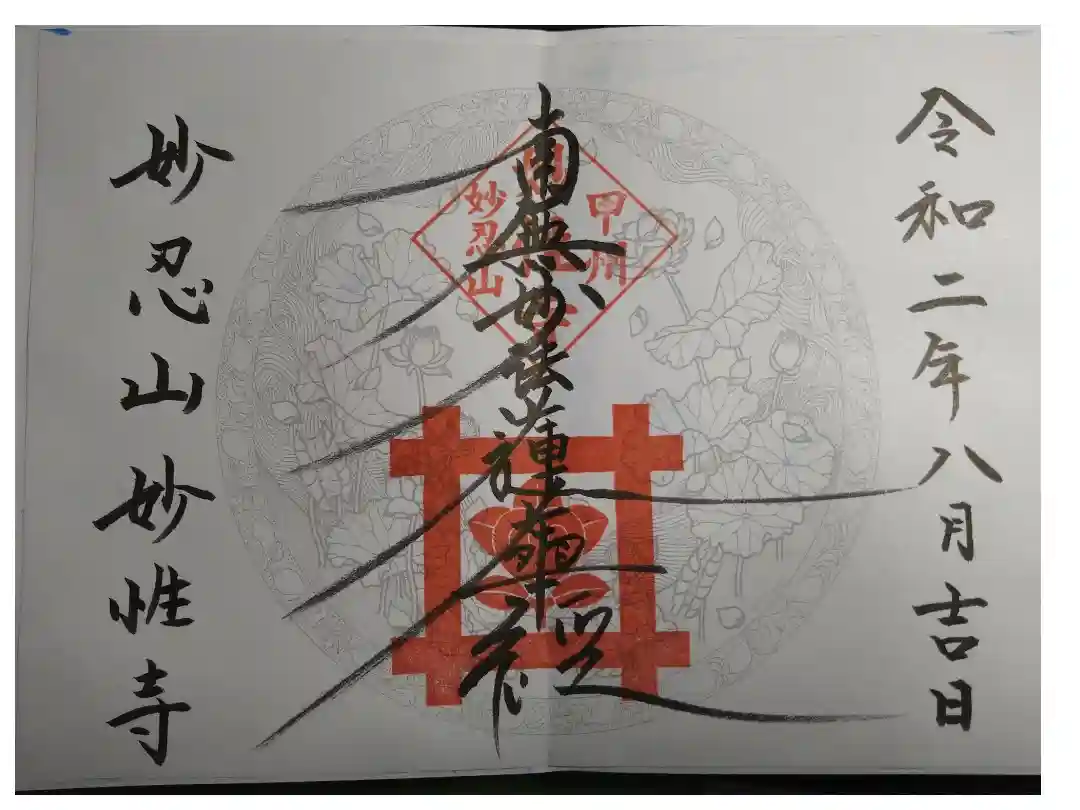 令和二年八月吉日
南無妙法蓮華經
妙忍山妙性寺
甲州
妙忍山